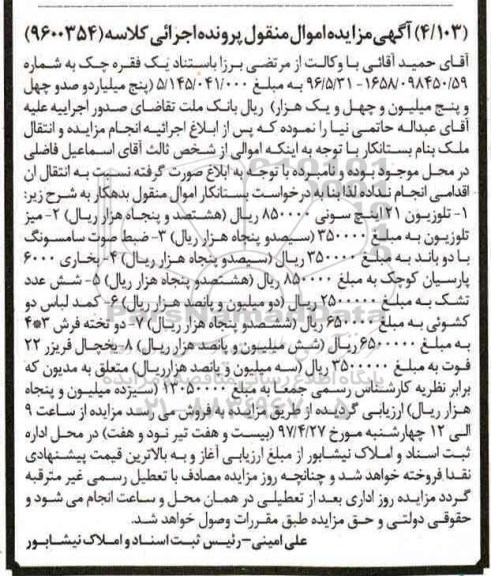 (۴/۱۰۳) آگهی مزایده اموال منقول پرونده اجرائی کلاسه (۹۶۰۰۳۵۴)
آقای حمید آقائی با وکالت از مرتضی برزا باستناد یک فقره چک به شماره
۱۶۵۸/۰۹۸۴۵۰/۵۹ -۹۶/۵/۳۱ به مبلغ ۵/۱۴۵/۰۴۱/۰۰۰ (پنج میلیارد و صدو چهل
و پنج میلیون و چهل و یک هزار) ریال بانک ملت تقاضای صدور اجراییه علیه
آقای عبداله حاتمی نیا را نموده که پس از ابلاغ اجرائیه انجام مزایده و انتقال
ملک بنام بستانکار با توجه به اینکه اموالی از شخص ثالث آقای اسماعیل فاضلی
در محل موجود بوده و نامبرده با توجه به ابلاغ صورت گرفته نسبت به انتقال ان
اقدامی انجام نداده لذا بنا به درخواست بستانکار اموال منقول بدهکار به شرح زیر:
۱- تلوزیون ۲۱ اینچ سونی ۸۵۰۰۰۰ ریال (هشتصد و پنجاه هزار ریال) ۲- میز
تلوزیون به مبلغ ۳۵۰۰۰۰ (سیصدو پنجاه هزار ریال) ۳- ضبط صوت سامسونگ
با دو باند به مبلغ ۳۵۰۰۰۰ ریال (سیصدو پنجاه هزار ریال) ۴- بخاری ۶۰۰۰
پارسیان کوچک به مبلغ ۸۵۰۰۰۰ ریال (هشتصدو پنجاه هزار ریال) ۵- شش عدد
تشک به مبلغ ۲۵۰۰۰۰۰ ریال (دو میلیون و پانصد هزار ریال) ۶- کمد لباس دو
کشوئی به مبلغ ۶۵۰۰۰۰ ریال (ششصدو پنجاه هزار ریال) ۷- دو تخته فرش ۳*۴
به مبلغ ۶۵۰۰۰۰۰ ریال (شش میلیون و پانصد هزار ریال) ۸- یخچال فریزر ۲۲
فوت به مبلغ ۳۵۰۰۰۰۰ ریال (سه میلیون و پانصد هزار ریال) متعلق به مدیون که
برابر نظریه کارشناس رسمی جمعا به مبلغ ۱۳۰۵۰۰۰۰ (سیزده میلیون و پنجاه
هزار ریال) ارزیابی گردیده از طریق مزایده به فروش می رسد مزایده از ساعت ۹
الی ۱۲ چهارشنبه مورخ ۹۷/۴/۲۷ (بیست و هفت تیر نود و هفت) در محل اداره
ثبت اسناد و املاک نیشابور از مبلغ ارزیابی آغاز و به بالاترین قیمت پیشنهادی
نقدا فروخته خواهد شد و چنانچه روز مزایده مصادف با تعطیل رسمی غیر مترقبه
گردد مزایده روز اداری بعد از تعطیلی در همان محل و ساعت انجام می شود و
حقوقی دولتی و حق مزایده طبق مقررات وصول خواهد شد.
علی امینی-رئیس ثبت اسناد و املاک نیشابور